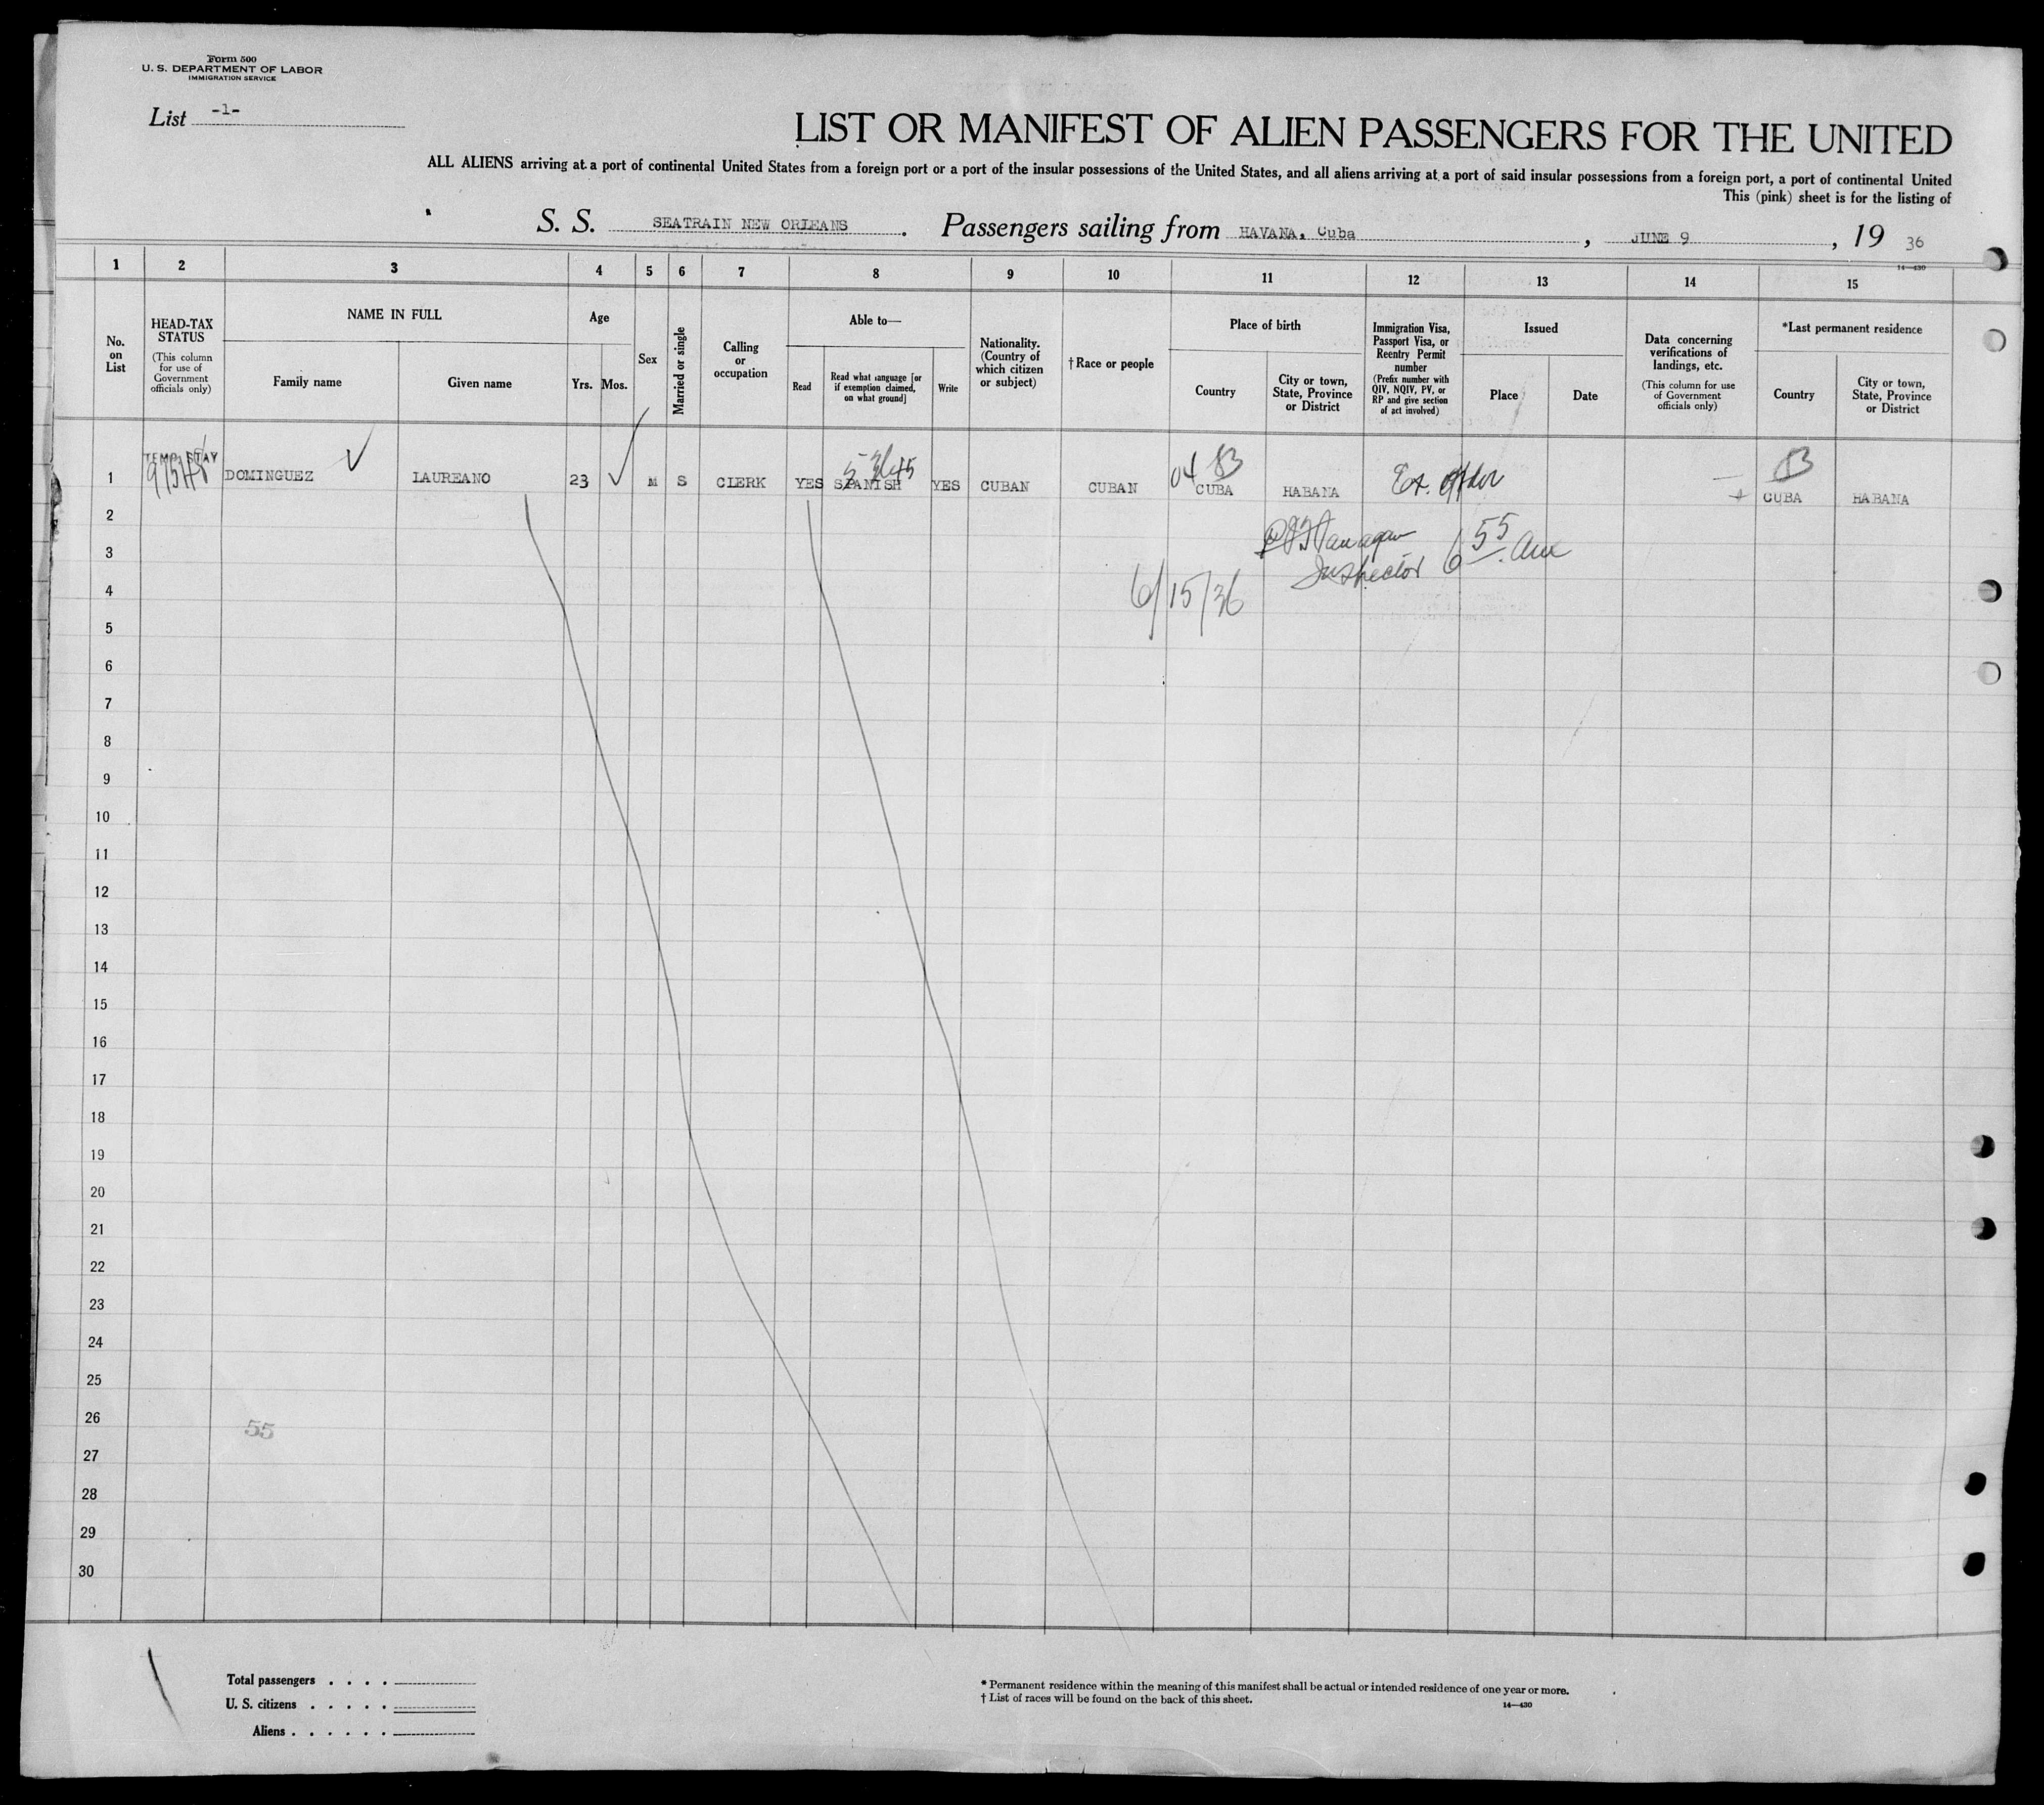 Form 500
U. S. DEPARTMENT OF LABOR
IMMIGRATION SERVICE
List -1-
LIST OR MANIFEST OF ALIEN PASSENGERS FOR THE UNITED
ALL ALIENS arriving at a port of continental United States from a foreign port or a port of the insular possessions of the United States, and all aliens arriving at a port of said insular possessions from a foreign port, a port of continental United
This (pink) sheet is for the listing of
S. S. SEATRAIN NEW ORLEANS. Passengers sailing from HAVANA, Cuba, JUNE 9, 19 36
14—430
1 2 3 4 5 6 7 8 9 10 11 12 13 14 15
No. on List
HEAD-TAX STATUS
(This column for use of Government officials only)
NAME IN FULL
Family name
Given name
Age
Yrs. Mos.
Sex
Married or single
Calling or occupation
Able to—
Read
Read what language [or if exemption claimed, on what ground]
Write
Nationality. (Country of which citizen or subject)
†Race or people
Place of birth
Country
City or town, State, Province or District
Immigration Visa, Passport Visa, or Reentry Permit number
(Prefix number with QIV, NQIV, PV, or RP and give section of act involved)
Issued
Place
Date
Data concerning verifications of landings, etc.
(This column for use of Government officials only)
*Last permanent residence
Country
City or town, State, Province or District
TEMP. STAY
04
1 DOMINGUEZ LAUREANO 23 M S CLERK YES SPANISH YES CUBAN CUBAN CUBA HABANA CUBA HABANA
2
3
Inspector 6 55 am
4
6/15/36
5
6
7
8
9
10
11
12
13
14
15
16
17
18
19
20
21
22
23
24
25
26
55
27
28
29
30
Total passengers . . . .
U. S. citizens . . . . .
Aliens . . . . . .
* Permanent residence within the meaning of this manifest shall be actual or intended residence of one year or more.
† List of races will be found on the back of this sheet.
14—430